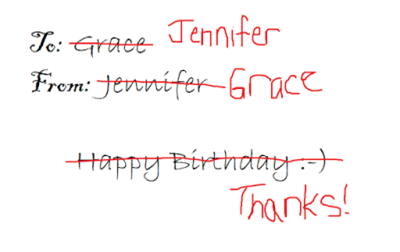 To: Grace Jennifer
From: Jennifer Grace
Happy Birthday :-)
Thanks!